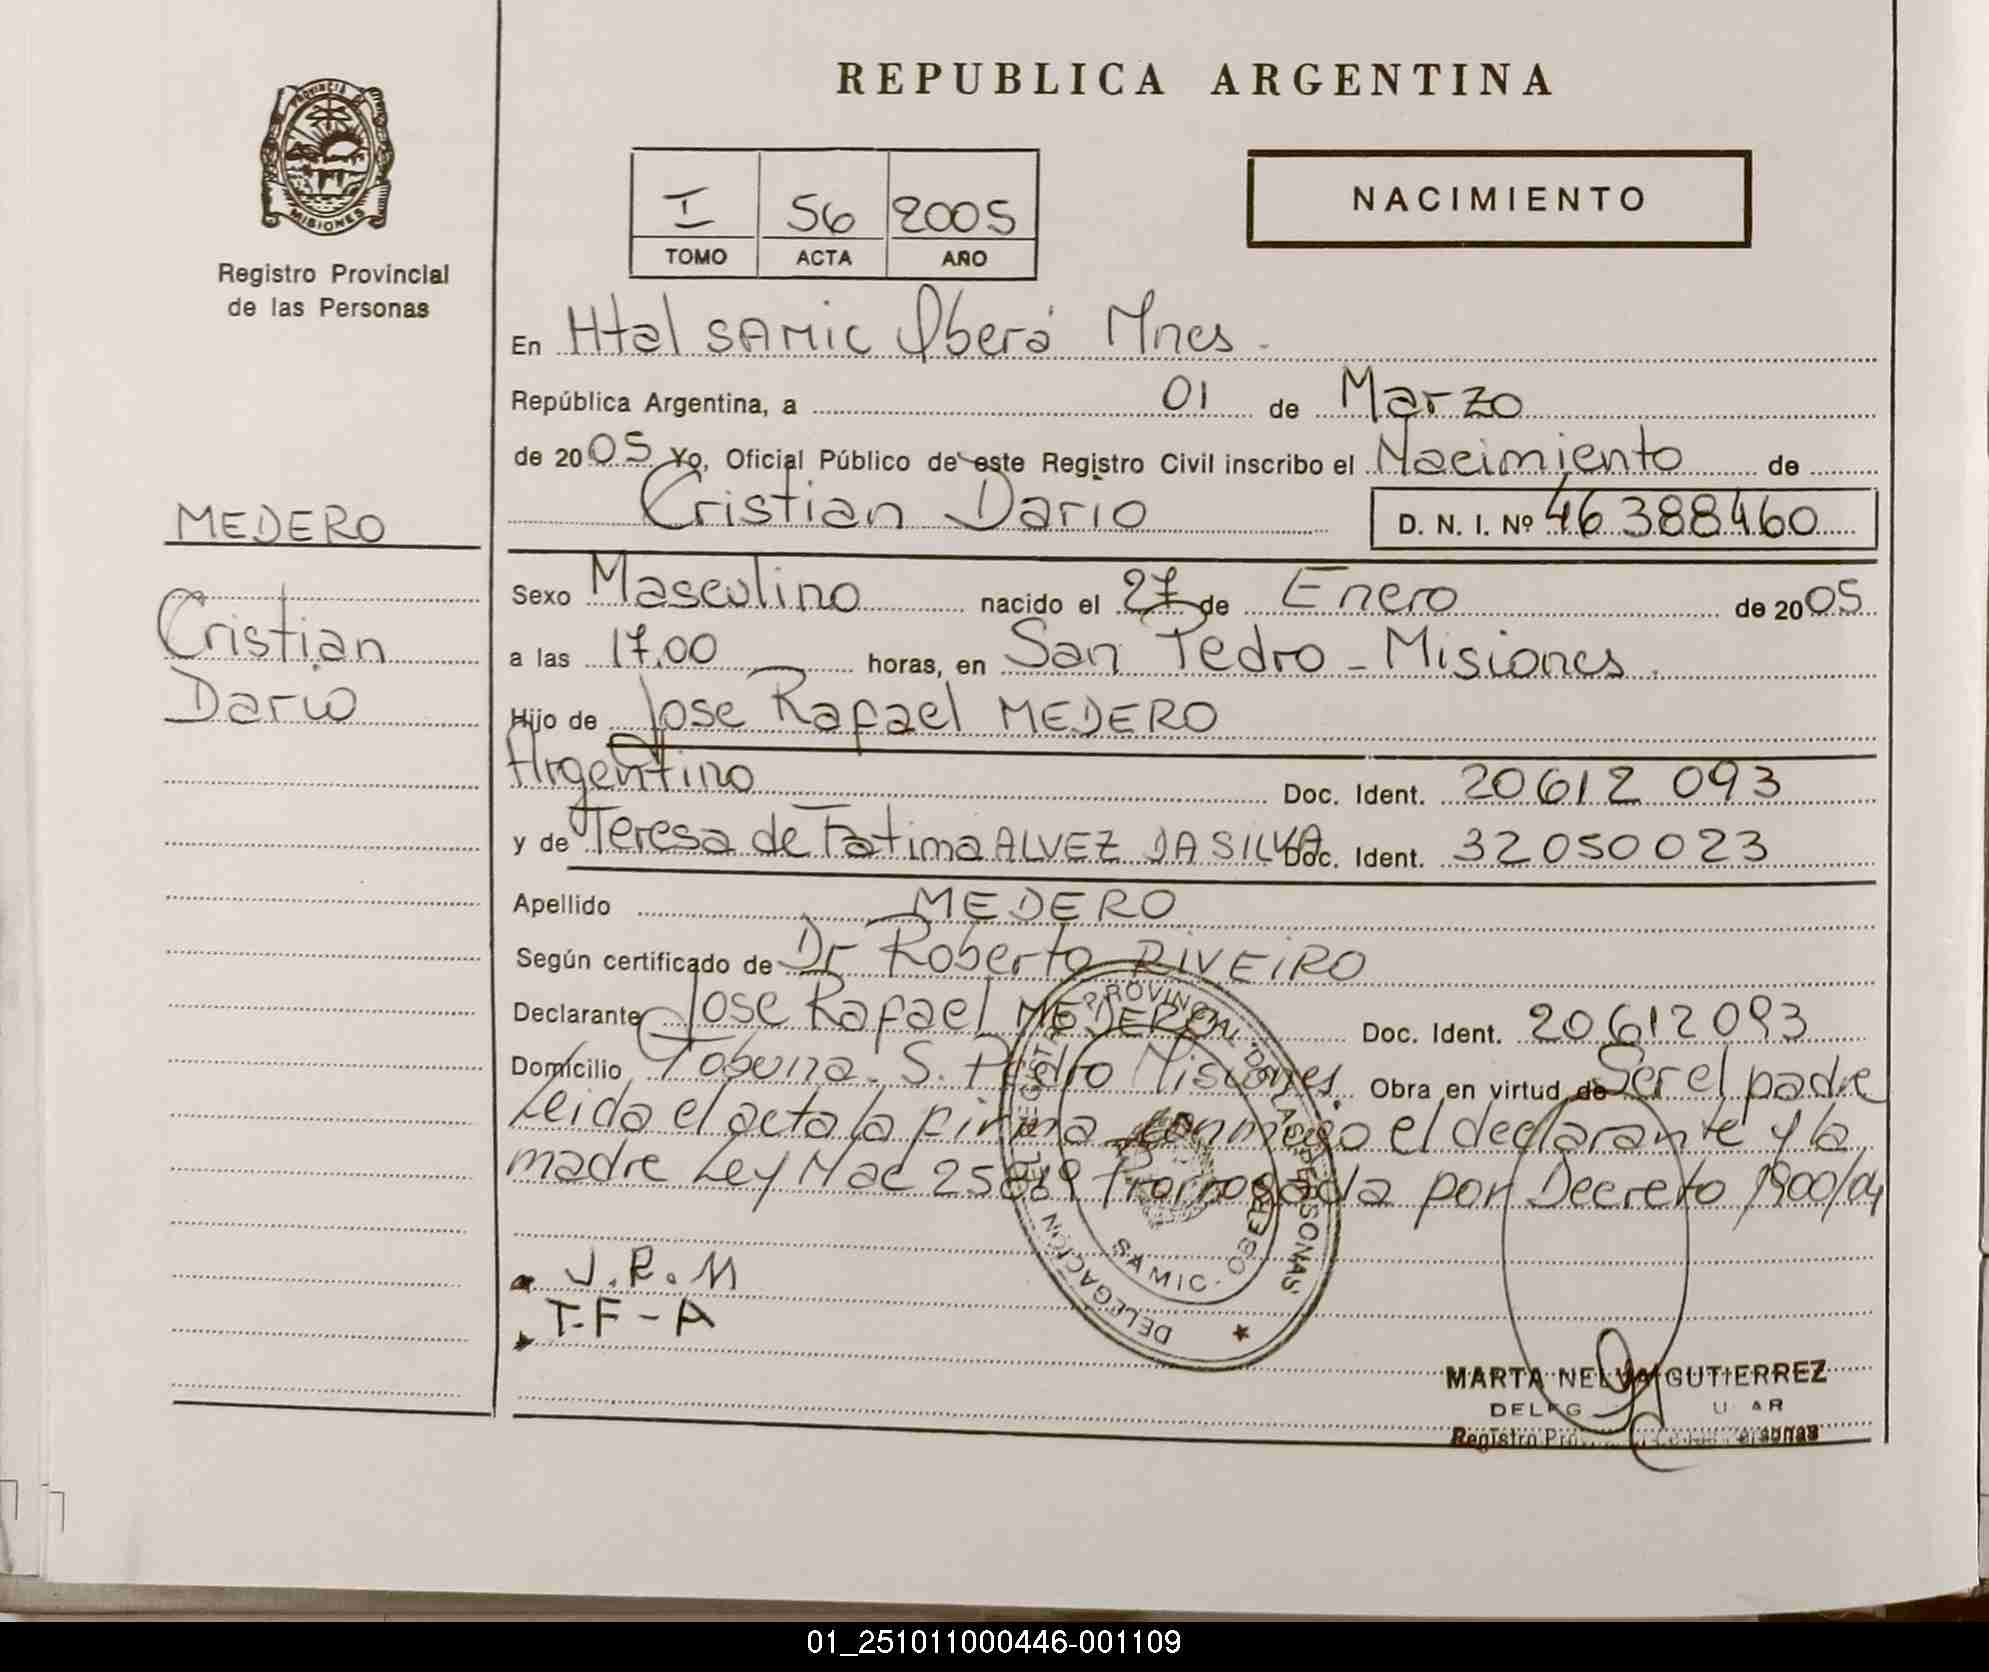 REPUBLICA ARGENTINA
PROVINCIA DE
MISIONES
Registro Provincial
de las Personas
I 56 2005
TOMO ACTA AÑO
NACIMIENTO
En Htal SAMIC Oberá Mnes.
República Argentina, a 01 de Marzo
de 2005 Yo, Oficial Público de este Registro Civil inscribo el Nacimiento de
Cristian Dario D. N. I. Nº 46 388460
MEDERO
Cristian
Dario
Sexo Masculino nacido el 27 de Enero de 2005
a las 17.00 horas, en San Pedro - Misiones.
Hijo de Jose Rafael MEDERO
Argentino Doc. Ident. 20612 093
y de Teresa de Fatima ALVEZ DA SILVA Doc. Ident. 32050023
Apellido MEDERO
Según certificado de Dr Roberto RIVEIRO
Declarante Jose Rafael MEDERO Doc. Ident. 20612093
Domicilio Tobuna. S. Pedro Misiones. Obra en virtud de Ser el padre
Leida el acta la firma conmigo el declarante y la
madre Ley Nac 25819 Prorrogada por Decreto 1900/04
DELEGACION DEL REGISTRO PROVINCIAL DE LAS PERSONAS
SAMIC - OBERA
J.R.M
T-F-A
MARTA NELVA GUTIERREZ
Registro
01_251011000446-001109